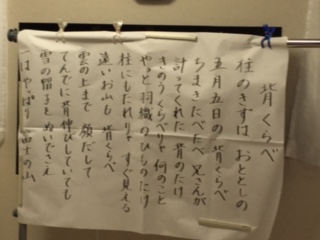 背くらべ
柱のきずは おととしの
五月五日の 背くらべ
ちまきたべたべ 兄さんが
計ってくれた 背のたけ
きのうくらべりゃ 何のこと
やっと羽織の ひものたけ
柱にもたれりゃ すぐ見える
遠いお山も 背くらべ
雲の上まで 顔だして
てんでに背伸びしていても
雪の帽子を ぬいでさえ
一はやっぱり 富士の山